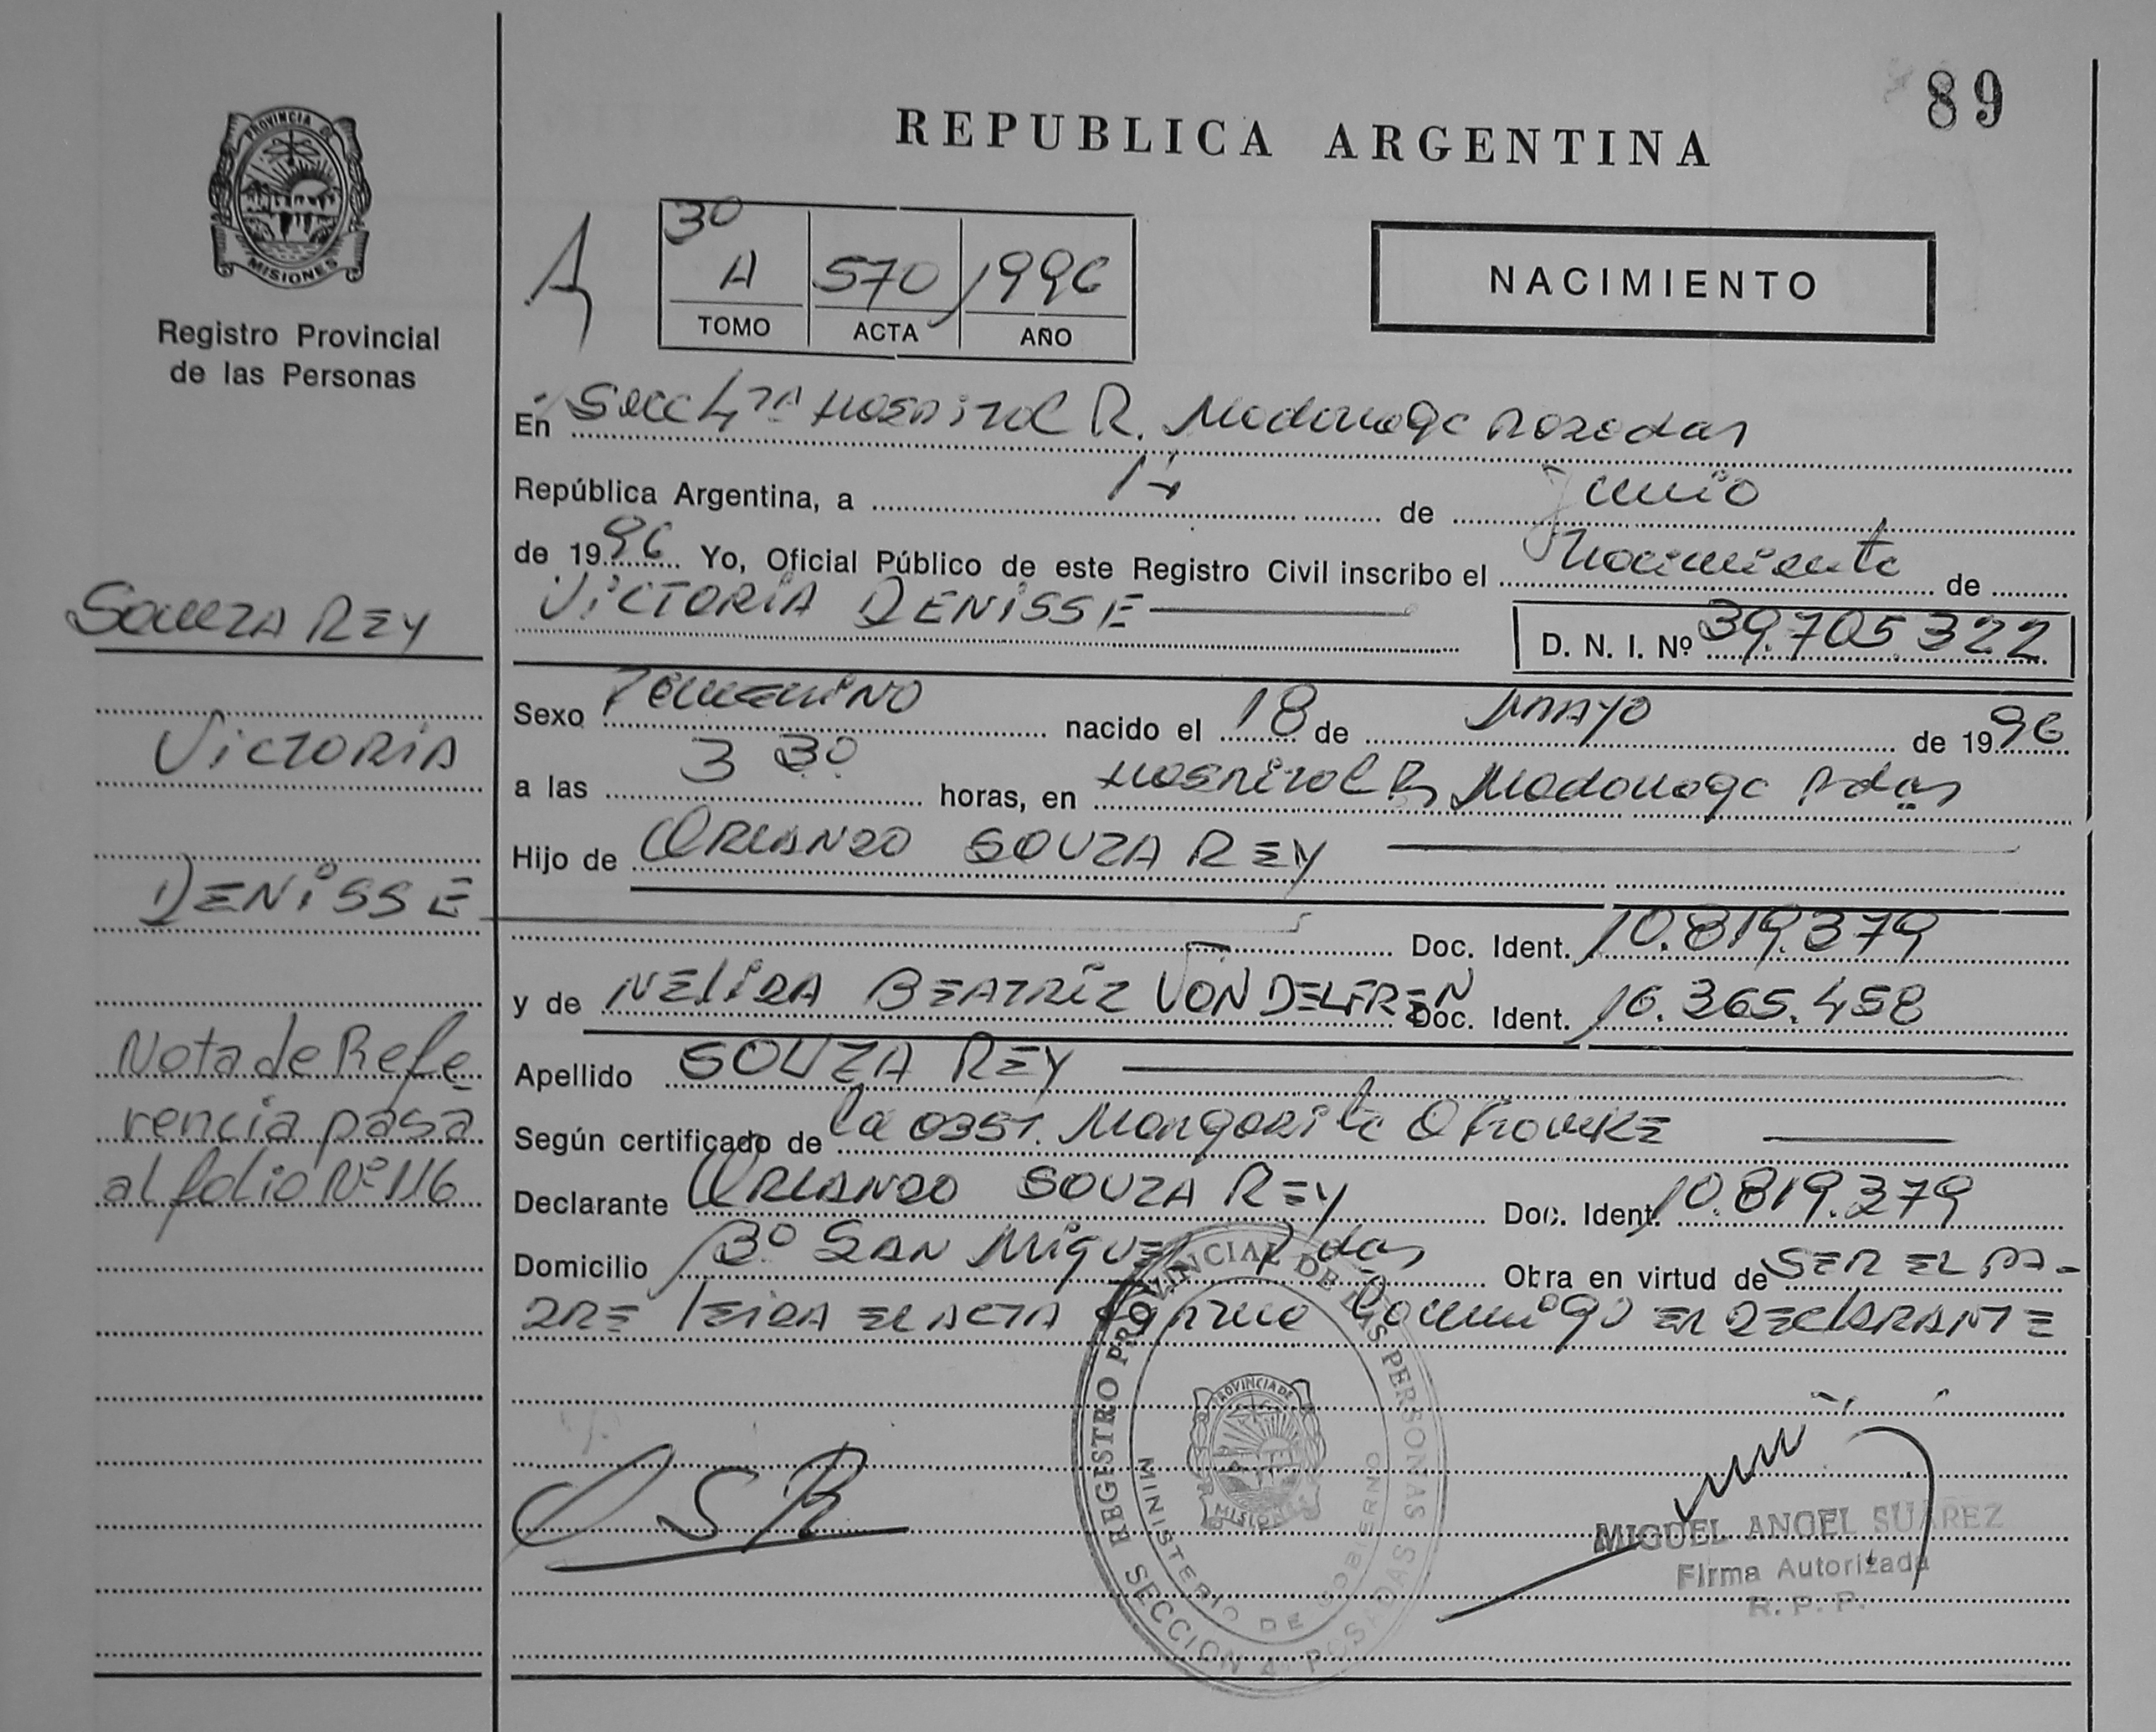 89
PROVINCIA DE
MISIONES
Registro Provincial
de las Personas
REPUBLICA ARGENTINA
A
3º
A 570 1996
TOMO ACTA AÑO
NACIMIENTO
En Secc 4ta Hospital R. Madariaga Posadas
República Argentina, a 14 de Junio
de 1996 Yo, Oficial Público de este Registro Civil inscribo el Nacimiento de
VICTORIA DENISSE
D. N. I. Nº 39.705.322
Sexo Femenino nacido el 18 de MAYO de 1996
a las 3 30 horas, en Hospital R Madariaga Pdas
Hijo de ORLANDO SOUZA REY
Doc. Ident. 10.819.379
y de NELIDA BEATRIZ VON DELFREN Doc. Ident. 16.365.458
Apellido SOUZA REY
Según certificado de la Obst. Margarita
Declarante ORLANDO SOUZA REY Doc. Ident. 10.819.379
Domicilio Bº SAN Miguel Pdas Obra en virtud de SER EL PA-
DRE LEIDA EL ACTA Firma Conmigo EL DECLARANTE
SOUZA REY
VICTORIA
DENISSE
Nota de Refe
rencia pasa
al folio Nº 116
OSR
REGISTRO PROVINCIAL DE LAS PERSONAS
MINISTERIO DE GOBIERNO
PROVINCIA DE
MISIONES
SECCION 4º POSADAS
MIGUEL ANGEL SUAREZ
Firma Autorizada
R. P. P.